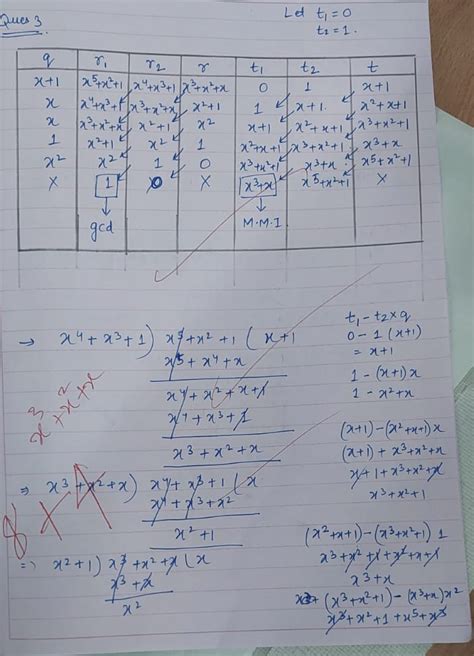 Ques 3
Let t₁ = 0
t₂ = 1.
q r₁ r₂ r t₁ t₂ t
x+1 x⁵+x²+1 x⁴+x³+1 x³+x²+x 0 1 x+1
x x⁴+x³+1 x³+x²+x x²+1 1 x+1 x²+x+1
x x³+x²+x x²+1 x² x+1 x²+x+1 x³+x²+1
1 x²+1 x² 1 x²+x+1 x³+x²+1 x³+x
x² x² 1 0 x³+x²+1 x³+x x⁵+x²+1
X 1 0 X x³+x x⁵+x²+1 X
gcd M.M.I
→ x⁴+x³+1 ) x⁵+x²+1 ( x+1
x⁵+x⁴+x
x⁴+x²+x+1
x⁴+x³+1
x³+x²+x
⇒ x³+x²+x ) x⁴+x³+1 ( x
x⁴+x³+x²
x²+1
⇒ x²+1 ) x³+x²+x ( x
x³+x
x²
x³+x²+x
t₁-t₂×q
0-1(x+1)
= x+1
1-(x+1)x
1-x²+x
(x+1)-(x²+x+1)x
(x+1)+x³+x²+x
x+1+x³+x²+x
x³+x²+1
(x²+x+1)-(x³+x²+1)1
x³+x²+1+x²+x+1
x³+x
(x³+x²+1)-(x³+x)x²
x³+x²+1+x⁵+x³